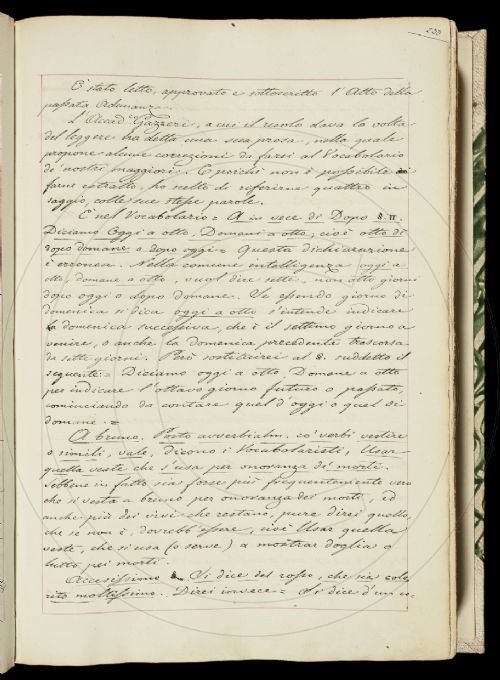 233
E' stato letto, approvato e sottoscritto l'Atto della
passata Adunanza.
L'Accad. Gazzeri, a cui il ruolo dava la volta
del leggere ha detta una sua prosa, nella quale
propone alcune correzioni da farsi al Vocabolario
de' nostri maggiori. E poichè non è possibile di
farne estratto, ho scelto di referirne quattro in
saggio, colle sue stesse parole.
E' nel Vocabolario = A in vece di Dopo §. II.
Diciamo Oggi a otto, Domani a otto; cioè otto dì
dopo domane o dopo oggi = Questa dichiarazione
è erronea. Nella comune intelligenza oggi a
otto, domane a otto, vuol dire sette, non otto giorni
dopo oggi o dopo domane. Se essendo giorno di
domenica si dica oggi a otto s'intende indicare
la domenica successiva, che è il settimo giorno a
venire, o anche la domenica precedente trascorsa
da sette giorni. Però sostituirei al §. suddetto il
seguente = Diciamo oggi a otto, Domane a otto
per indicare l'ottavo giorno futuro o passato,
cominciando da contare quel d'oggi o quel di
domane. =
A bruno. Posto avverbialm. co' verbi vestire
o simili, vale, dicono i Vocabolaristi, Usar
quella veste che s'usa per onoranza de' morti.
Sebbene in fatto sia forse più frequentemente vero
che si vesta a bruno per onoranza dei morti, ed
anche più dei vivi che restano, pure direi quello,
che se non è, dovrebb'essere, cioè Usar quella
veste, che si usa (o serve) a mostrar doglia o
lutto pei morti.
Accesissimo Si dice del rosso, che sia colo-
rito moltissimo. Direi invece = Si dice d'un co-